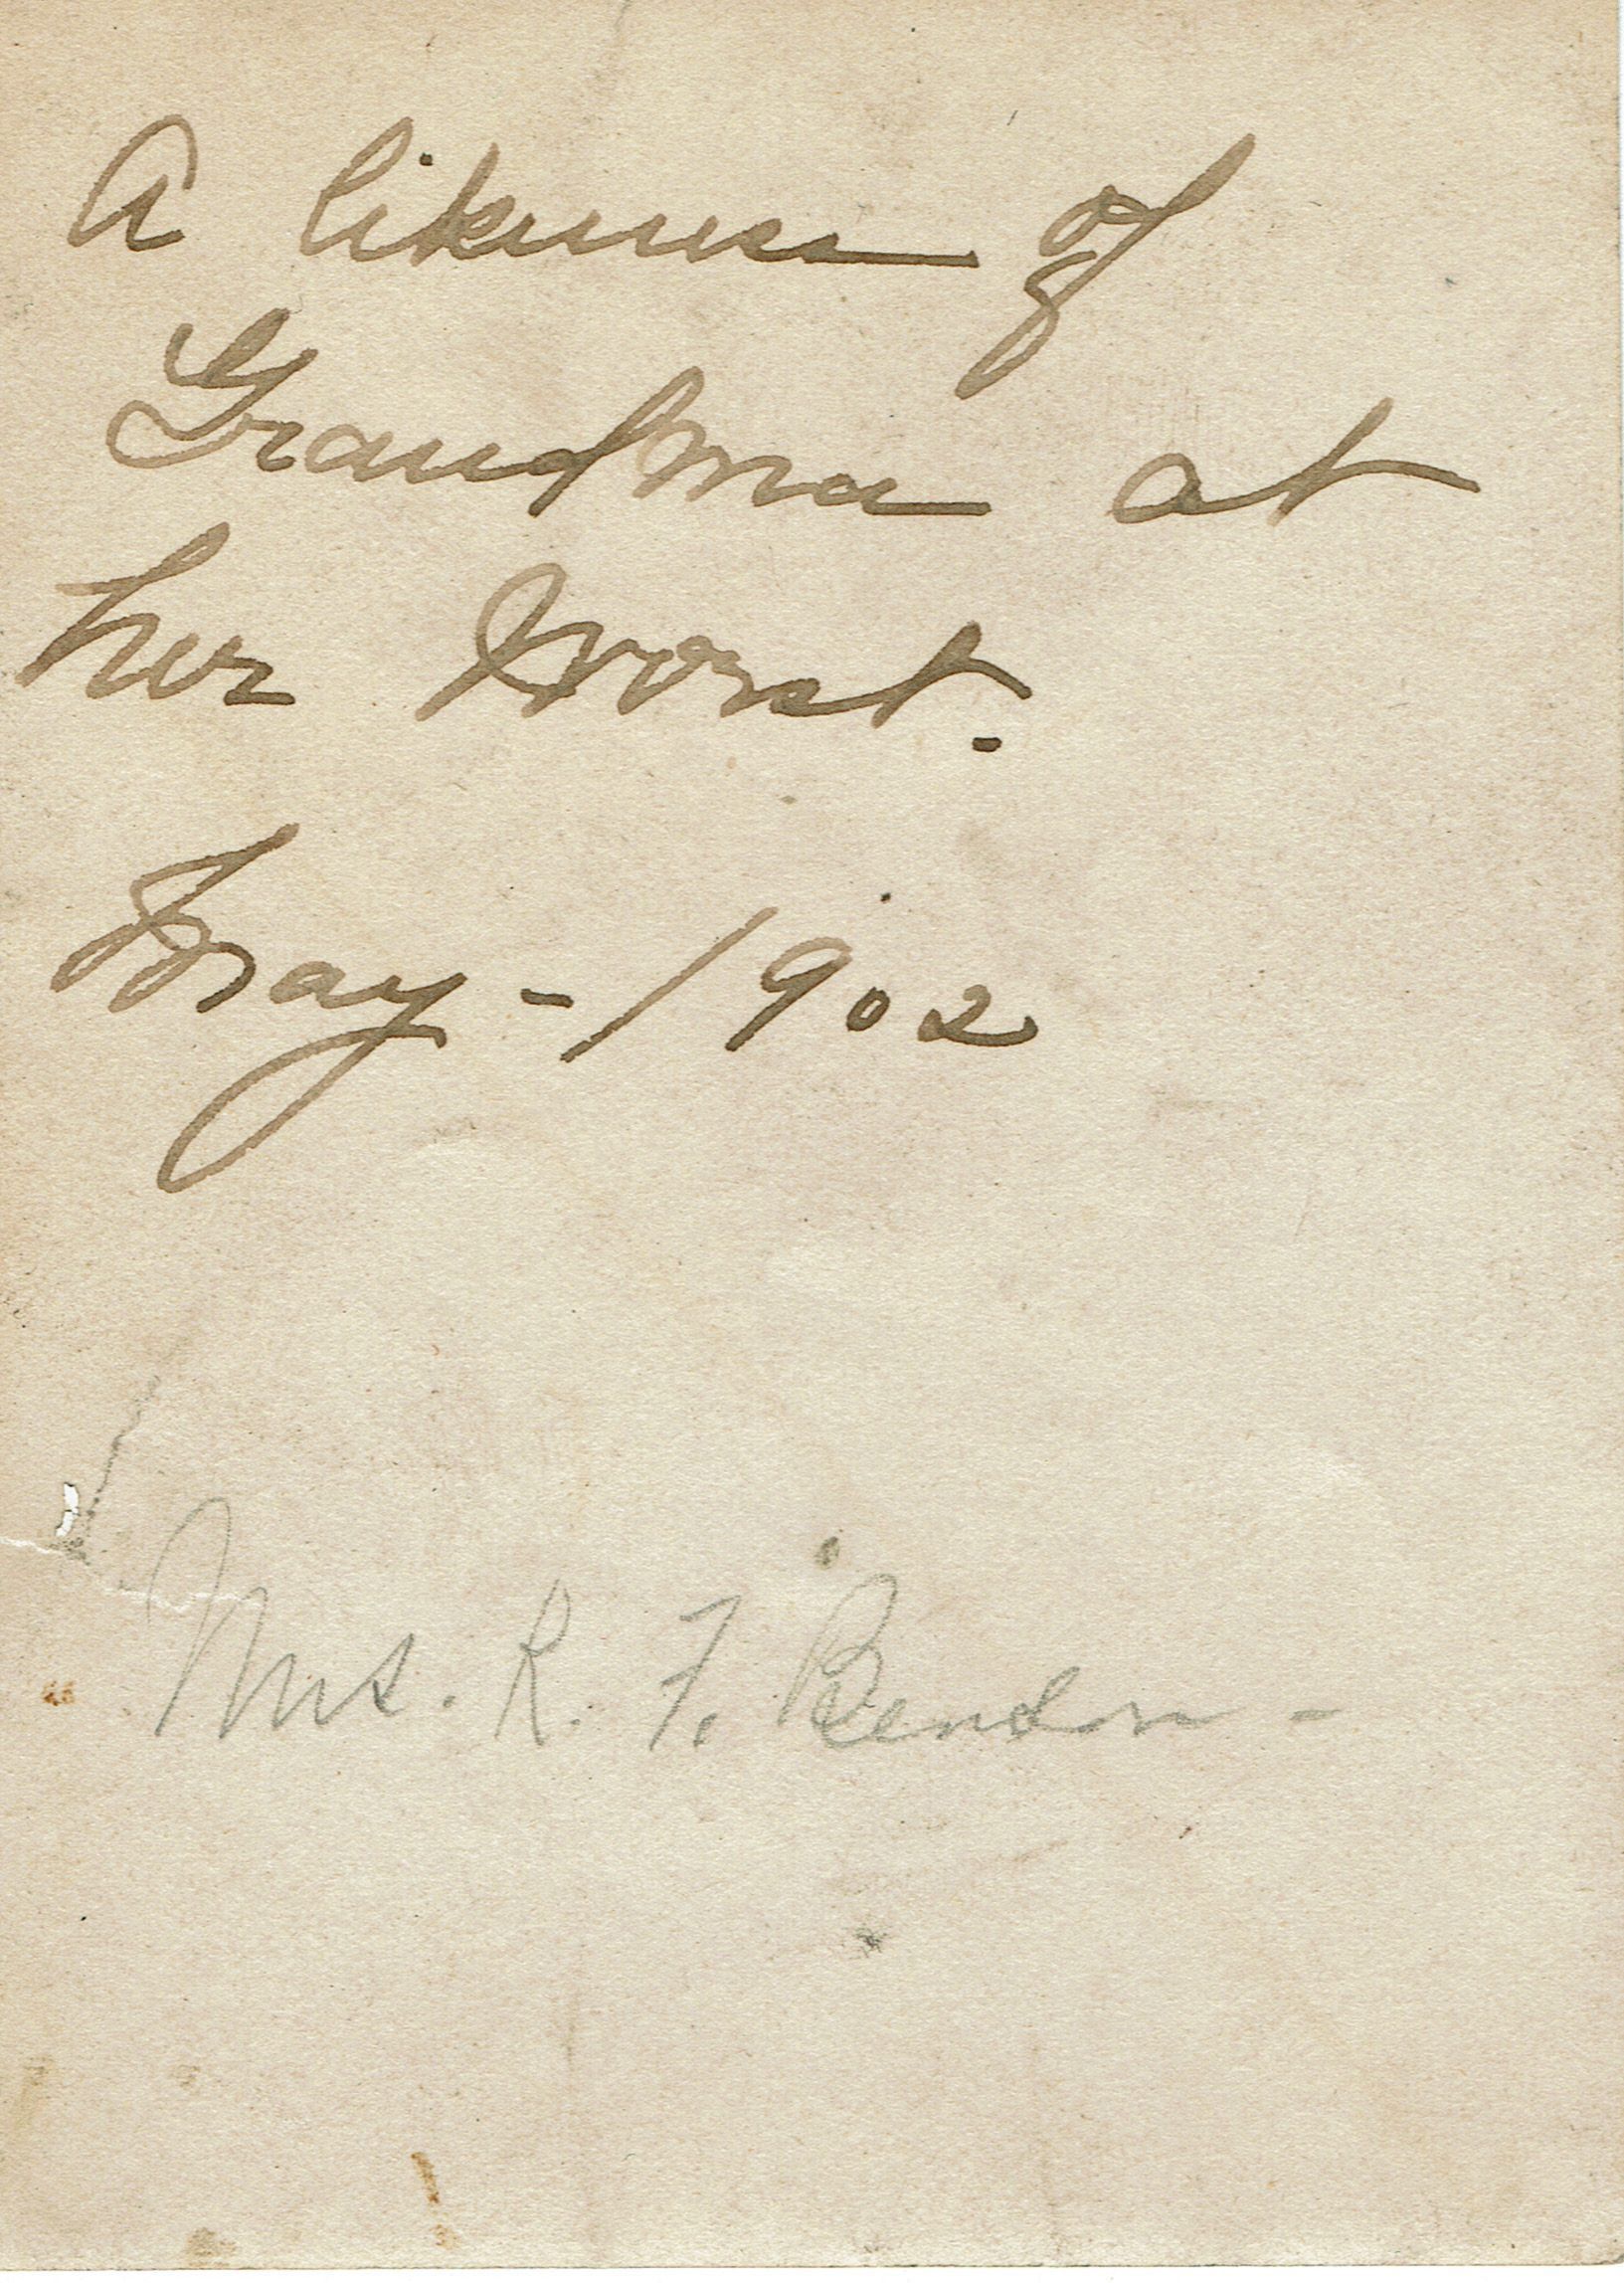 A likeness of
Grandma at
her Worst.
May - 1902
Mrs. R. F.